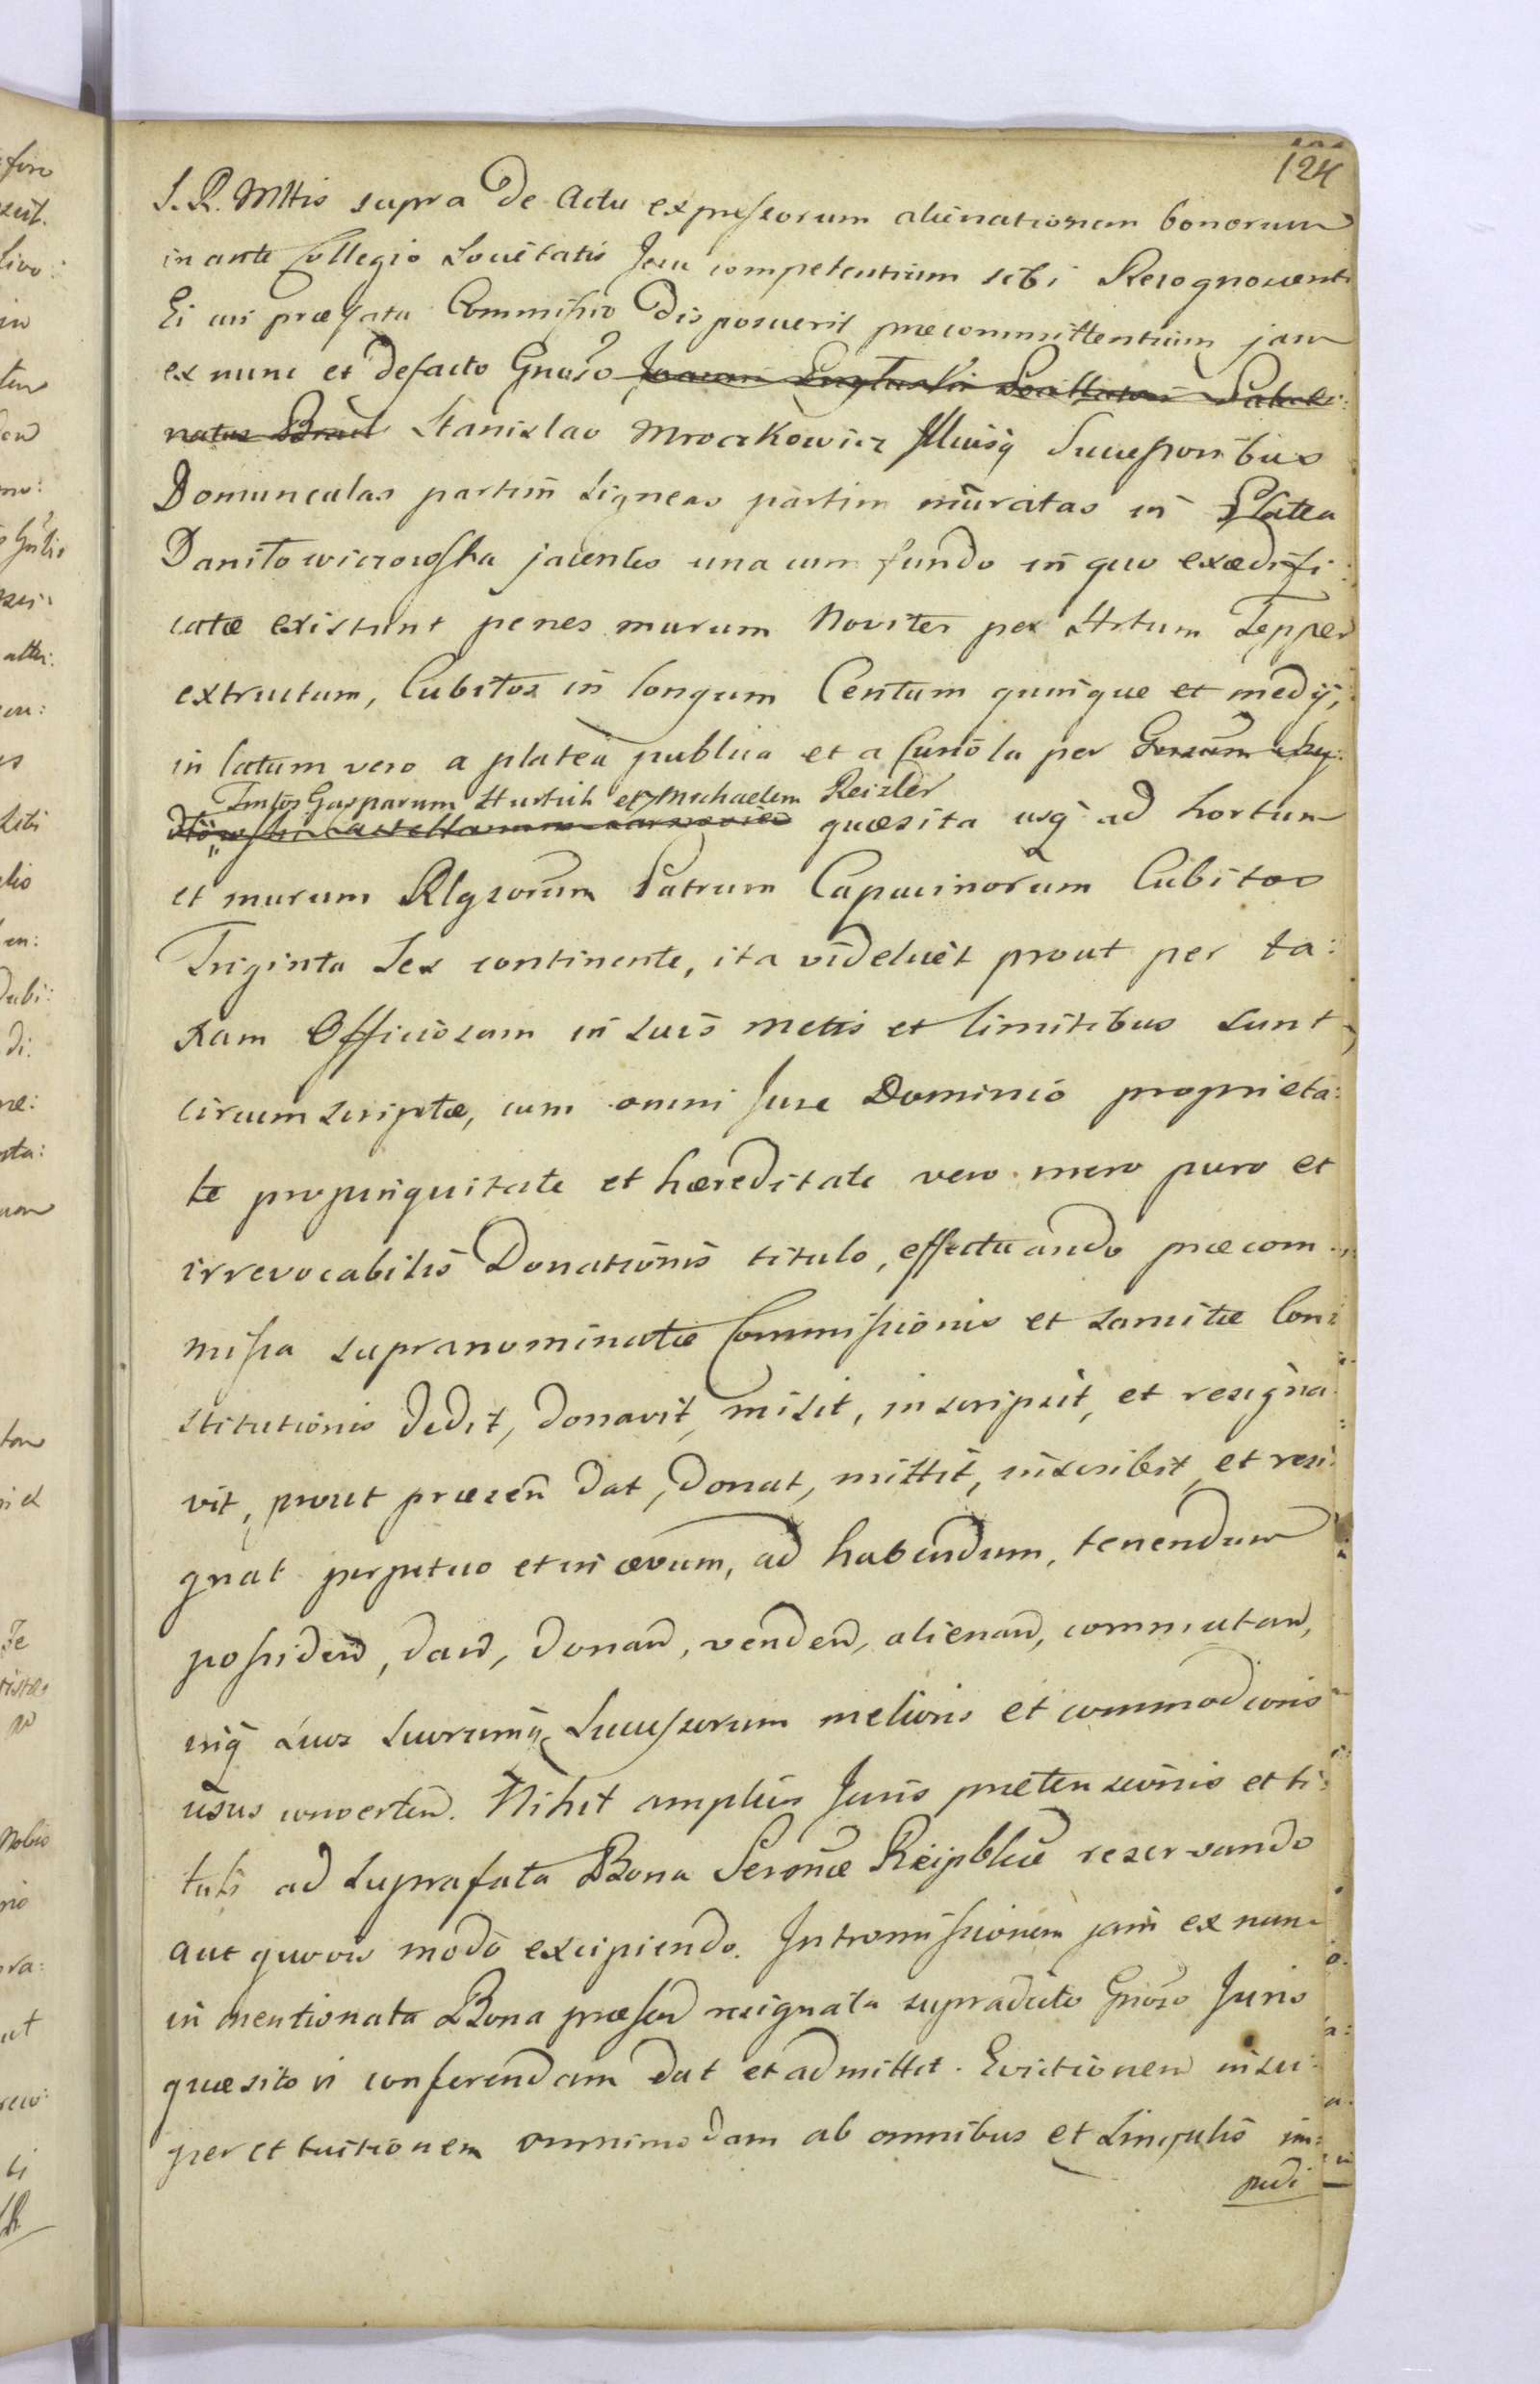 124
S. R. Mttis supra de Actu expressorum alienationem bonorum
in ante Collegio Societatis Jesu competentium sibi Recognoscenti
Ei cui præfata Commissio disposuerit præcommittentium jam
ex nunc et defacto Gnoso
Stanislao Mroczkowicz Illiusq Successoribus
Domunculas partim Ligneas partim muratas in Platea
Daniłowiczowska jacentes una cum fundo in quo exædifi:
catæ existunt penes murum Noviter per Sttum Tepper
extructum, Cubitos in longum Centum quinque et medy,
in latum vero a platea publica et a Curiola per
Fmtos Gasparum Hurtich et Michaelem Reizler
quæsita usq ad hortum
et murum Rlgsorum Patrum Capucinorum Cubitos
Triginta Sex continente, ita videlicet prout per ta:
xam Officiosam in suis metis et limitibus sunt
circumscriptæ, cum omni Jure Dominio proprieta:
te propinquitate et hæreditate vero mero puro et
irrevocabilis Donationis titulo, effectuando præcom:
missa supranominatæ Commissionis et sancitæ Con:
stitutionis dedit, donavit, misit, inscripsit, et resigna:
vit, prout præsen dat, donat, mittit, inscribit, et resi:
gnat perpetuo et in ævum, ad habendum, tenendum
possidend, dand, donand, vendend, alienand, commutand,
inq suos suorumq Successorum melioris et commodioris
usus convertend. Nihil amplius Juris prætensionis et ti:
tuli ad suprafata Bona Sermæ Reipblicæ reservando
aut quovis modo excipiendo. Intromissionem jam ex nunc
in mentionata Bona præsen resignata supradicto Gnoso Juris
quæsito vi conferendam dat et admittit. Evictionem insu:
per et tuitionem omnimodam ab omnibus et singulis im:
pedi